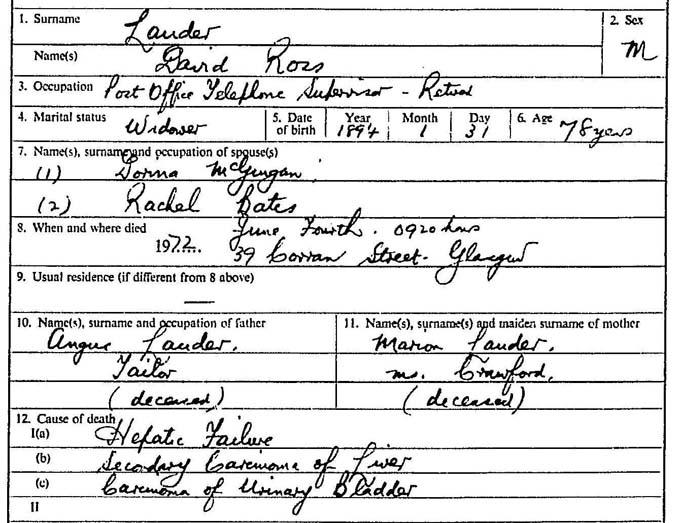 1. Surname Lauder 2. Sex
Name(s) David Ross M
3. Occupation Post Office Telephone Supervisor - Retired
4. Marital status Widower 5. Date of birth Year 1894 Month 1 Day 31 6. Age 78 years
7. Name(s), surname and occupation of spouse(s)
(1) McGuigan
(2) Rachel Bates
8. When and where died June Fourth. 0920 hours
1972. 39 Corran Street. Glasgow
9. Usual residence (if different from 8 above)
—
10. Name(s), surname and occupation of father 11. Name(s), surname(s) and maiden surname of mother
Angus Lauder. Marion Lauder.
Tailor ms. Crawford.
(deceased) (deceased)
12. Cause of death
I(a) Hepatic Failure
(b) Secondary Carcinoma of Liver
(c) Carcinoma of Urinary Bladder
II